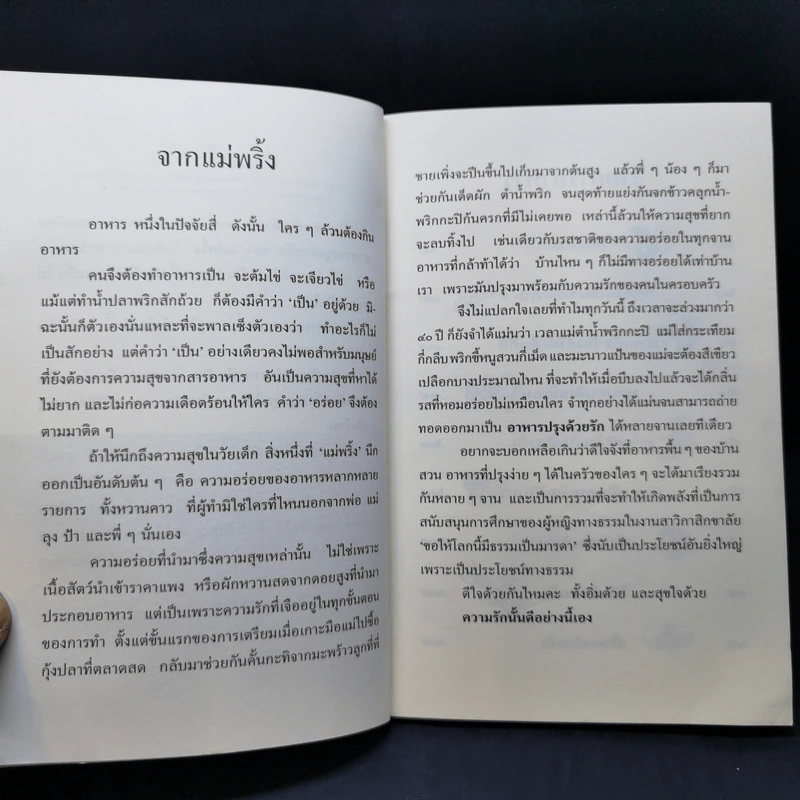 จากแม่พริ้ง
อาหาร หนึ่งในปัจจัยสี่ ดังนั้น ใคร ๆ ล้วนต้องกิน
อาหาร
คนจึงต้องทำอาหารเป็น จะต้มไข่ จะเจียวไข่ หรือ
แม้แต่ทำน้ำปลาพริกสักถ้วย ก็ต้องมีคำว่า ‘เป็น’ อยู่ด้วย มิ-
ฉะนั้นก็ตัวเองนั่นแหละที่จะพาลเซ็งตัวเองว่า ทำอะไรก็ไม่
เป็นสักอย่าง แต่คำว่า ‘เป็น’ อย่างเดียวคงไม่พอสำหรับมนุษย์
ที่ยังต้องการความสุขจากสารอาหาร อันเป็นความสุขที่หาได้
ไม่ยาก และไม่ก่อความเดือดร้อนให้ใคร คำว่า ‘อร่อย’ จึงต้อง
ตามมาติด ๆ
ถ้าให้นึกถึงความสุขในวัยเด็ก สิ่งหนึ่งที่ ‘แม่พริ้ง’ นึก
ออกเป็นอันดับต้น ๆ คือ ความอร่อยของอาหารหลากหลาย
รายการ ทั้งหวานคาว ที่ผู้ทำมิใช่ใครที่ไหนนอกจากพ่อ แม่
ลุง ป้า และพี่ ๆ นั่นเอง
ความอร่อยที่นำมาซึ่งความสุขเหล่านั้น ไม่ใช่เพราะ
เนื้อสัตว์นำเข้าราคาแพง หรือผักหวานสดจากดอยสูงที่นำมา
ประกอบอาหาร แต่เป็นเพราะความรักที่เจืออยู่ในทุกขั้นตอน
ของการทำ ตั้งแต่ขั้นแรกของการเตรียมเมื่อเกาะมือแม่ไปซื้อ
กุ้งปลาที่ตลาดสด กลับมาช่วยกันคั้นกะทิจากมะพร้าวลูกที่พี่
ชายเพิ่งจะปีนขึ้นไปเก็บมาจากต้นสูง แล้วพี่ ๆ น้อง ๆ ก็มา
ช่วยกันเด็ดผัก ตำน้ำพริก จนสุดท้ายแย่งกันจกข้าวคลุกน้ำ-
พริกกะปิก้นครกที่มีไม่เคยพอ เหล่านี้ล้วนให้ความสุขที่ยาก
จะลบทิ้งไป เช่นเดียวกับรสชาติของความอร่อยในทุกจาน
อาหารที่กล้าท้าได้ว่า บ้านไหน ๆ ก็ไม่มีทางอร่อยได้เท่าบ้าน
เรา เพราะมันปรุงมาพร้อมกับความรักของคนในครอบครัว
จึงไม่แปลกใจเลยที่ทำไมทุกวันนี้ ถึงเวลาจะล่วงมากว่า
๔๐ ปี ก็ยังจำได้แม่นว่า เวลาแม่ตำน้ำพริกกะปิ แม่ใส่กระเทียม
กี่กลีบ พริกขี้หนูสวนกี่เม็ด และมะนาวแป้นของแม่จะต้องสีเขียว
เปลือกบางประมาณไหน ที่จะทำให้เมื่อบีบลงไปแล้วจะได้กลิ่น
รสที่หอมอร่อยไม่เหมือนใคร จำทุกอย่างได้แม่นจนสามารถถ่าย
ทอดออกมาเป็น อาหารปรุงด้วยรัก ได้หลายจานเลยทีเดียว
อยากจะบอกเหลือเกินว่าดีใจจังที่อาหารพื้น ๆ ของบ้าน
สวน อาหารที่ปรุงง่าย ๆ ได้ในครัวของใคร ๆ จะได้มาเรียงรวม
กันหลาย ๆ จาน และเป็นการรวมที่จะทำให้เกิดพลังที่เป็นการ
สนับสนุนการศึกษาของผู้หญิงทางธรรมในงานสาวิกาสิกขาลัย
‘ขอให้โลกนี้มีธรรมเป็นมารดา’ ซึ่งนับเป็นประโยชน์อันยิ่งใหญ่
เพราะเป็นประโยชน์ทางธรรม
ดีใจด้วยกันไหมคะ ทั้งอิ่มด้วย และสุขใจด้วย
ความรักนั้นดีอย่างนี้เอง